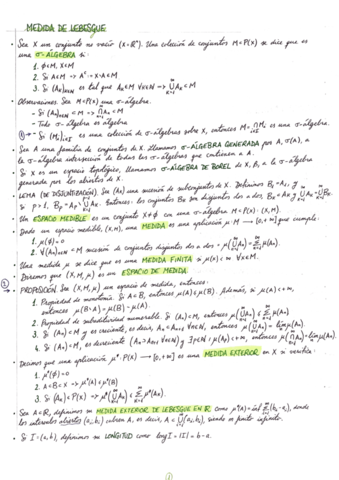 MEDIDA DE LEBESGUE
• Sea X un conjunto no vacío (X=ℝⁿ). Una colección de conjuntos M⊂P(X) se dice que es
una σ-ÁLGEBRA si:
1. ∅∈M, X∈M
2. Si A∈M → Aᶜ = X-A∈M
3. Si (Aₖ)ₖ∈ℕ es tal que Aₖ∈M ∀k∈ℕ → ⋃ₖ₌₁^∞ Aₖ∈M
• Observaciones. Sea M⊂P(X) una σ-álgebra.
- Si (Aₖ)ₖ∈ℕ ⊂ M → ⋂ₖ₌₁^∞ Aₖ∈M
- Toda σ-álgebra es álgebra
① → - Si (Mᵢ)ᵢ∈I es una colección de σ-álgebras sobre X, entonces M=⋂ᵢ∈I Mᵢ es una σ-álgebra.
• Sea A una familia de conjuntos de X. Llamamos σ-ÁLGEBRA GENERADA POR A, σ(A), a
la σ-álgebra intersección de todas las σ-álgebras que contienen a A.
• Si X es un espacio topológico, llamamos σ-ÁLGEBRA DE BOREL de X, B, a la σ-álgebra
generada por los abiertos de X.
• LEMA (DE DISJUNTIZACIÓN). Sea (Aₖ) una sucesión de subconjuntos de X. Definimos B₁=A₁, y
si p>1, Entonces: los conjuntos Bₖ son disjuntos dos a dos, Bₖ⊂Aₖ y
• Un ESPACIO MEDIBLE es un conjunto X≠∅ con una σ-álgebra M⊂P(X): (X,M)
• Dado un espacio medible, (X,M), una MEDIDA es una aplicación μ: M → [0,+∞] que cumple:
1. μ(∅)=0
2. ∀(Aₖ)ₖ∈ℕ ⊂ M sucesión de conjuntos disjuntos dos a dos → μ(⋃ₖ₌₁^∞ Aₖ)=Σₖ₌₁^∞ μ(Aₖ).
• Una medida μ se dice que es una MEDIDA FINITA si μ(A)<∞ ∀A∈M.
• Diremos que (X,M,μ) es un ESPACIO DE MEDIDA.
② • PROPOSICIÓN Sea (X,M,μ) un espacio de medida, entonces:
1. Propiedad de monotonía. Si A⊂B, entonces μ(A)≤μ(B). Además, si μ(A)<∞,
entonces μ(B-A)=μ(B)-μ(A).
2. Propiedad de subaditividad numerable. Si (Aₖ)⊂M, entonces μ(⋃Aₖ)≤Σμ(Aₖ).
3. Si (Aₖ)⊂M y es creciente, es decir, Aₖ⊂Aₖ₊₁ ∀k∈ℕ, entonces μ(⋃Aₖ)=lim μ(Aₖ).
4. Si (Aₖ)⊂M, es decreciente (Aₖ⊃Aₖ₊₁ ∀k∈ℕ) y ∃p∈ℕ / μ(Aₚ)<∞, entonces μ(⋂Aₖ)=lim μ(Aₖ).
• Decimos que una aplicación μ*: P(X) → [0,+∞] es una MEDIDA EXTERIOR en X si verifica:
1. μ*(∅)=0
2. A⊂B⊂X → μ*(A)≤μ*(B)
3. Si (Aₖ)⊂P(X) → μ*(⋃ₖ₌₁^∞ Aₖ) ≤ Σₖ₌₁^∞ μ*(Aₖ).
• Sea A⊂ℝ, definimos su MEDIDA EXTERIOR DE LEBESGUE EN ℝ como μ*(A)=inf Σ(bᵢ-aᵢ), donde
los intervalos abiertos (aᵢ,bᵢ) cubren A, es decir, A⊂⋃(aᵢ,bᵢ), siendo
• Si I=(a,b), definimos su LONGITUD como long I=|I|=b-a.
①